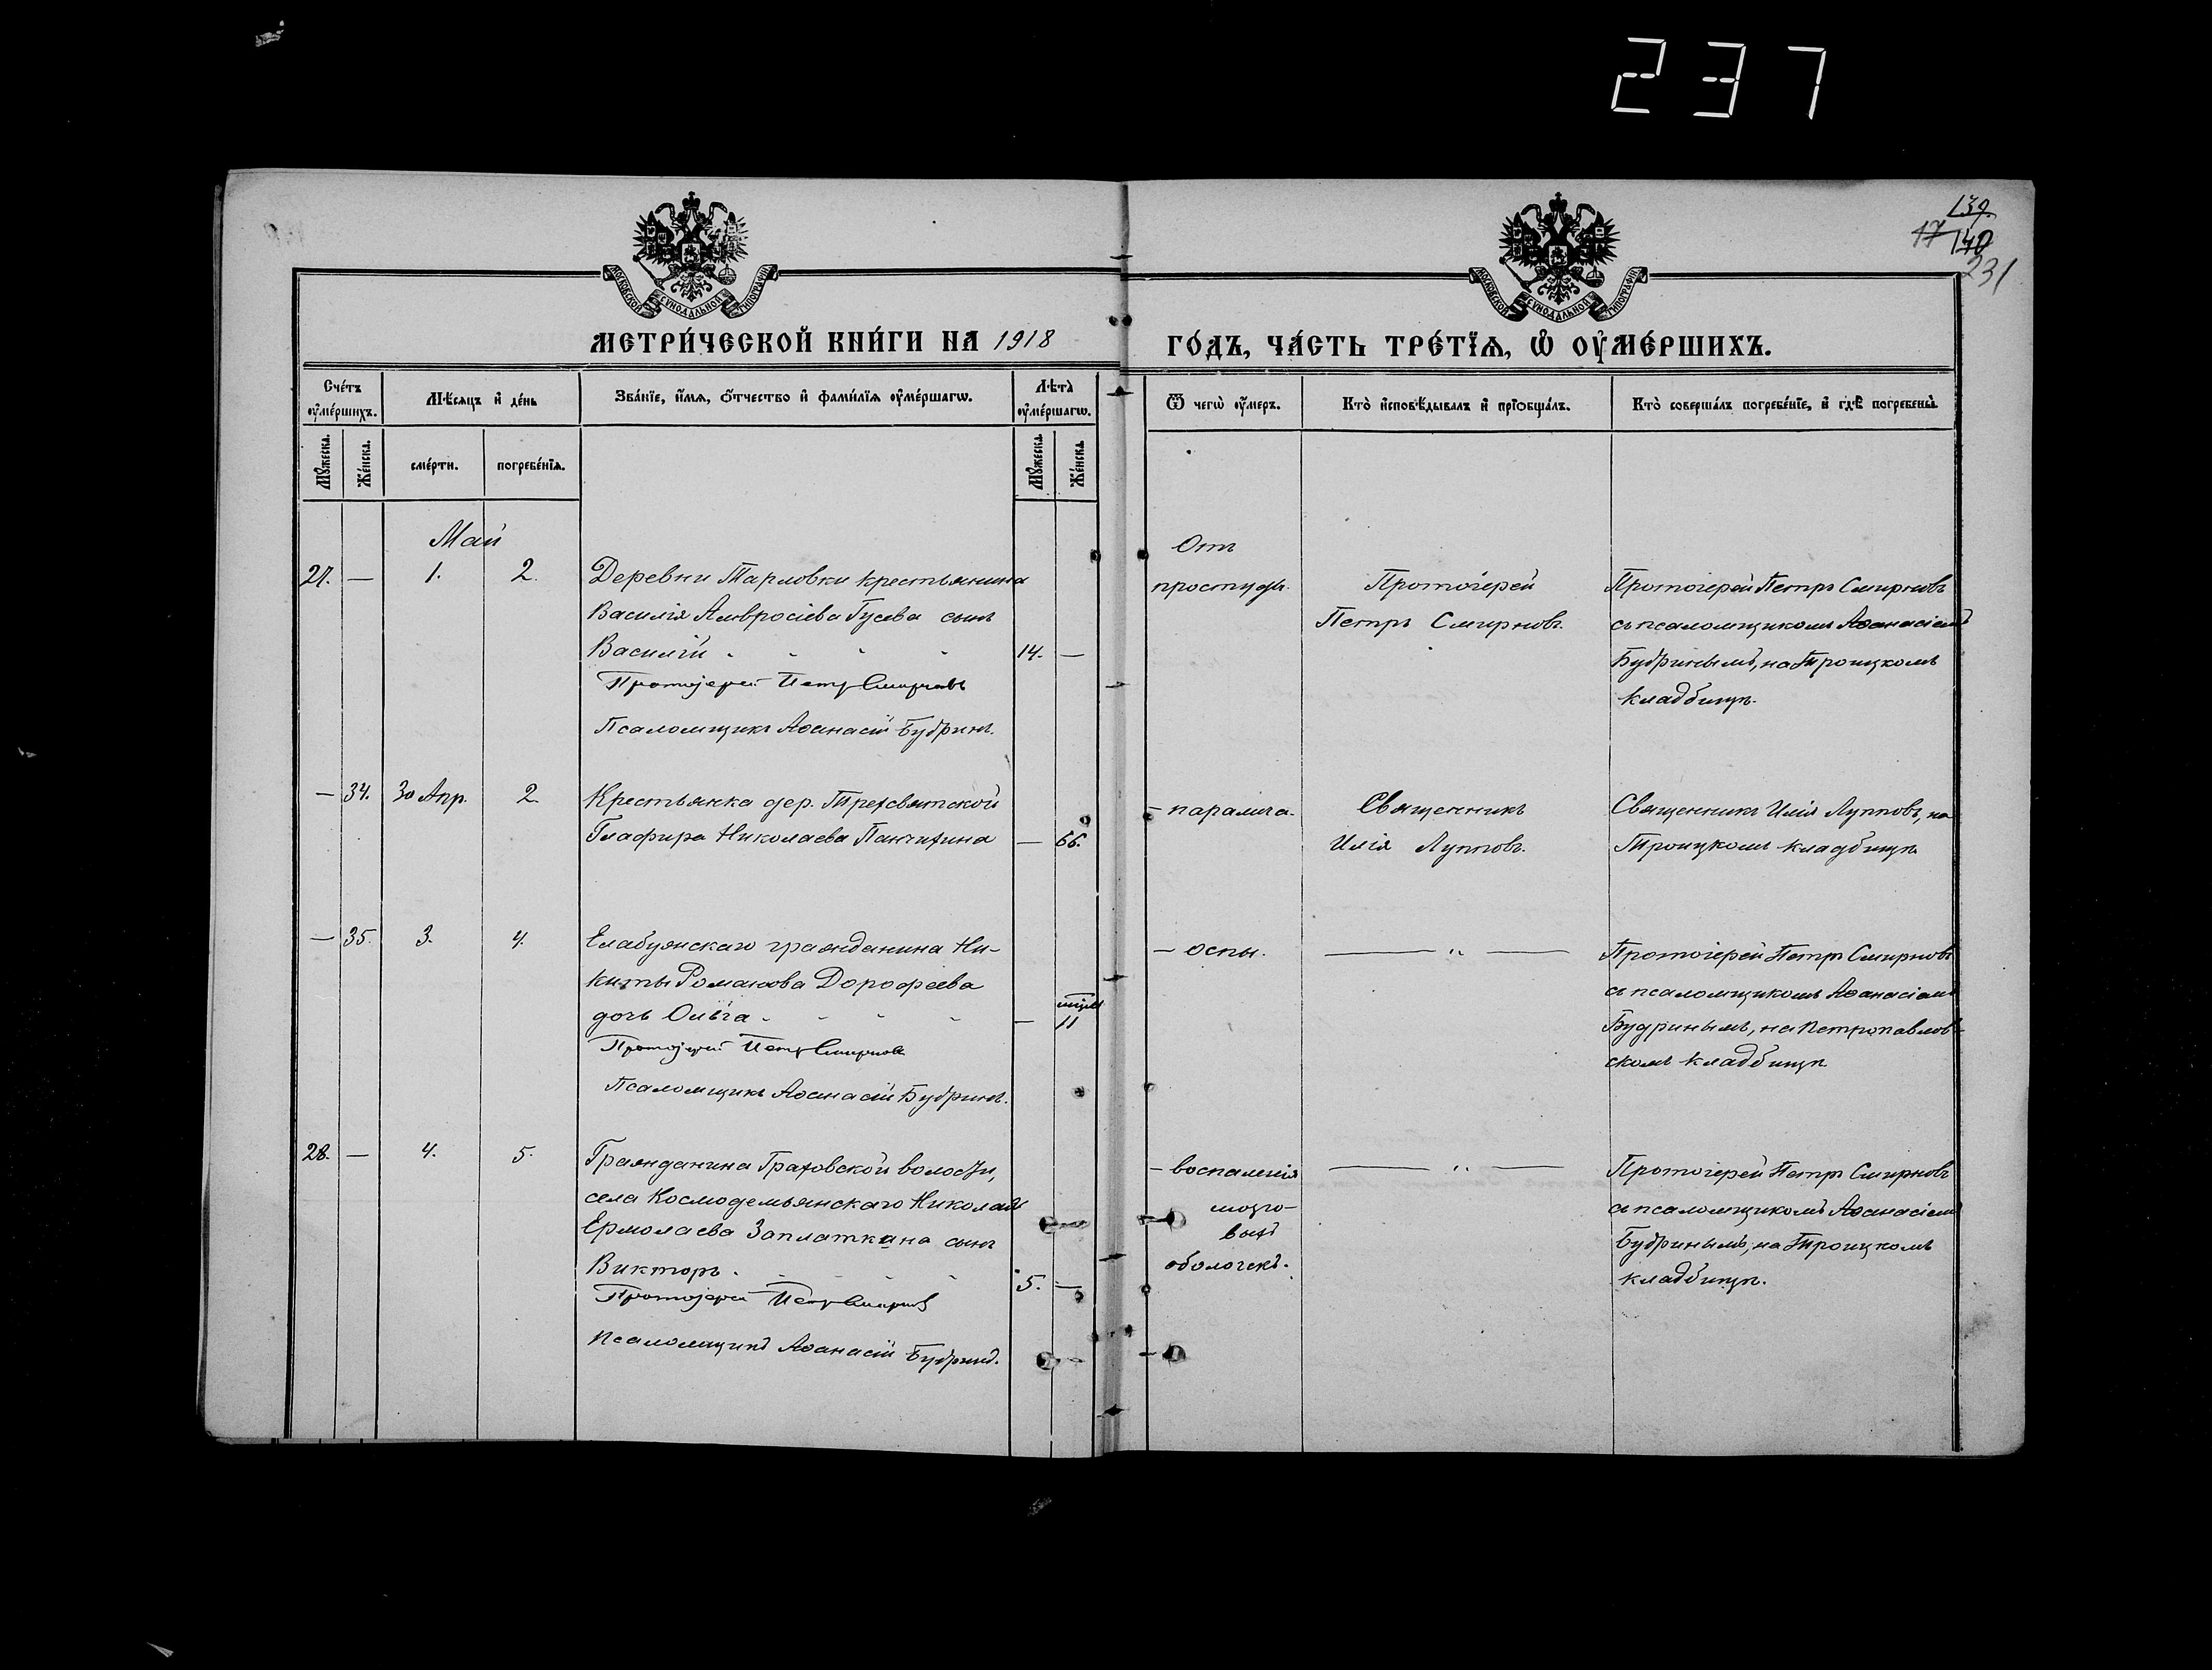 237
139.
17 140
231
МОСКОВСКОЙ СУНОДАЛЬНОЙ ТИПОГРАФІИ
МОСКОВСКОЙ СУНОДАЛЬНОЙ ТИПОГРАФІИ
МЕТРИ́ЧЕСКОЙ КНИ́ГИ НА 1918
ГО́ДЪ, ЧА́СТЬ ТРЕ́ТЇѦ, Ѡ ОУМЕ́РШИХЪ.
Сче́тъ оуме́ршихъ.
Мѣ́сяцъ и де́нь
Зва́нїе, и́мѧ, ѻ́тчество и фами́лїѧ оуме́ршагѡ.
Лѣта̀ оуме́ршагѡ.
Ѿ чегѡ̀ оу́меръ.
Кто̀ исповѣ́дывалъ и прїѡбща́лъ.
Кто̀ соверша́лъ погребе́нїе, и гдѣ̀ погребены̀.
Му́жеска.
Же́нска.
сме́рти.
погребе́нїѧ.
Му́жеска.
Же́нска.
Май
27. — 1. 2. Деревни Тарловки крестьянина
Василія Амвросіева Гусева сынъ
Василій - - - - 14. —
Протоіерей Петръ Смирновъ
Псаломщикъ Аѳанасій Будринъ.
Отъ
простуды.
Протоіерей
Петръ Смирновъ.
Протоіерей Петръ Смирновъ
съ псаломщикомъ Аѳанасіемъ
Будринымъ, на Троицкомъ
кладбищѣ.
— 34. 30 Апр. 2. Крестьянка дер. Трехсвятской
Глафира Николаева Панчихина — 66.
— паралича.
Священникъ
Илія Лупповъ.
Священникъ Илія Лупповъ, на
Троицкомъ кладбищѣ
— 35. 3. 4. Елабужскаго гражданина Ни-
киты Романова Дорофеева
дочь Ольга - - - - — мѣся. 11
Протоіерей Петръ Смирновъ
Псаломщикъ Аѳанасій Будринъ.
— оспы.
— " —
Протоіерей Петръ Смирновъ
съ псаломщикомъ Аѳанасіемъ
Будринымъ, на Петропавлов-
скомъ кладбищѣ
28. — 4. 5. Гражданина Граховской волости,
села Космодемьянскаго Николая
Ермолаева Заплаткина сынъ
Викторъ - - - - 5. —
Протоіерей Петръ Смирновъ
Псаломщикъ Аѳанасій Будринъ.
— воспаленія
мозго-
выхъ
оболочекъ.
— " —
Протоіерей Петръ Смирновъ
съ псаломщикомъ Аѳанасіемъ
Будринымъ, на Троицкомъ
кладбищѣ.